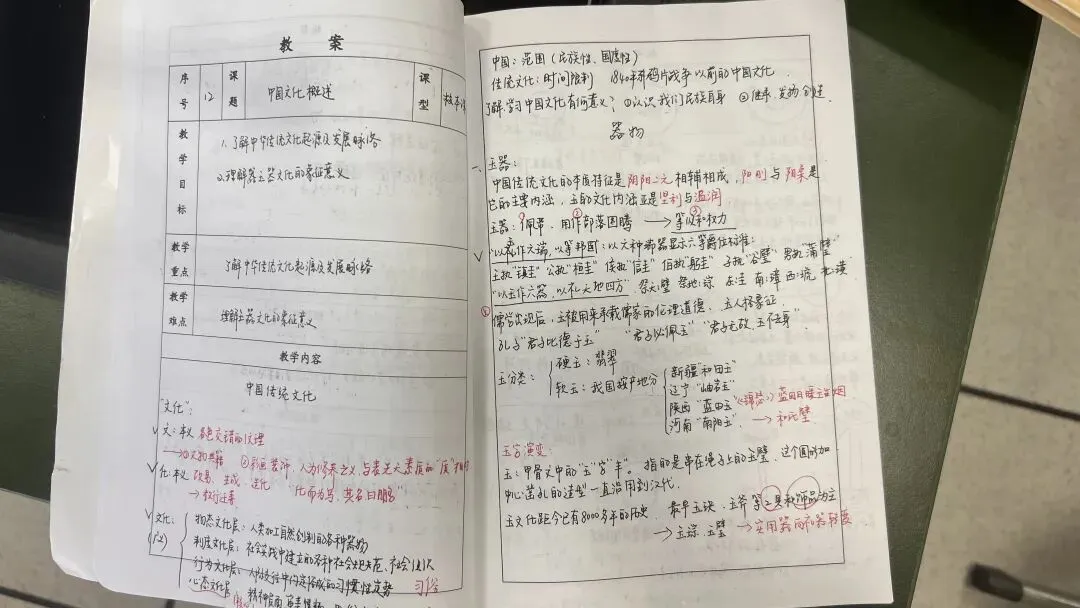 教 案
序号 12 课题 中国文化概述 课型
教学目标 1.了解中华传统文化起源及发展脉络
2.理解器玉器文化的象征意义
教学重点 了解中华传统文化起源及发展脉络
教学难点 理解玉器文化的象征意义
教学内容
中国传统文化
"文化":
文:本义 各色交错的纹理
→①文物典籍 ②彩画装饰、人为修养之义 与表示天素质的"质"相对
化:本义 改易、生成、造化 "化而为鸟,其名曰鹏"
→教行迁善
文化:(广义)
物态文化层:人类加工自然创制的各种器物
制度文化层:社会实践中建立的各种社会规范、社会组织
行为文化层:人际交往中约定俗成的习惯性定势 习俗
心态文化层:
中国:范围(民族性、国度性)
传统文化:时间限制 1840年鸦片战争以前的中国文化
了解学习中国文化有何意义?①认识我们民族自身 ②继承、发扬、创造
器物
一、玉器:
中国传统文化的本质特征是阴阳二元相辅相成,阳刚与阴柔是
它的主要内涵,玉的文化内涵正是坚利与温润
玉器:①佩带、②用作部落图腾 → ③等级和权力
"以玉作六瑞,以等邦国":以六种瑞器显示六等爵位标准:
王执"镇圭" 公执"桓圭" 侯执"信圭" 伯执"躬圭" 子执"谷璧" 男执"蒲璧"
"以玉作六器,以礼天地四方" 祭天:璧 祭地:琮 东:圭 南:璋 西:琥 北:璜
儒学出现后,玉被用来承载儒家的伦理道德、玉人格象征
孔子"君子比德于玉" "君子必佩玉" "君子无故,玉不去身"
玉分类:
硬玉:翡翠
软玉:我国按产地分
新疆"和田玉"
辽宁"岫岩玉"
陕西"蓝田玉"《锦瑟》蓝田日暖玉生烟
河南"南阳玉" → 和氏璧
玉字演变:
玉:甲骨文中的"玉"字"丰"。指的是串在绳子上的玉璧,这个圆形加
中心凿孔的造型一直沿用到汉代
玉文化距今已有8000多年的历史 最早玉玦、玉斧等工具和饰品为主
→玉琮、玉璧 →实用器向礼器转变